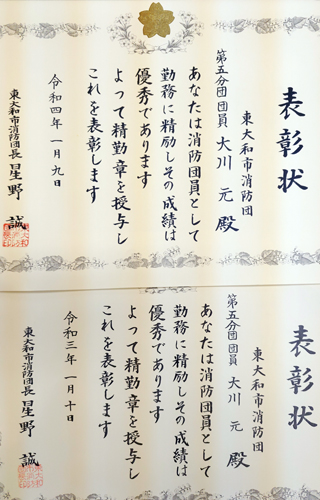 表彰状
東大和市消防団
第五分団団員 大川 元 殿
あなたは消防団員として
勤務に精励しその成績は
優秀であります
よって精勤章を授与し
これを表彰します
令和四年一月九日
東大和市消防団長 星野 誠
表彰状
東大和市消防団
第五分団団員 大川 元 殿
あなたは消防団員として
勤務に精励しその成績は
優秀であります
よって精勤章を授与し
これを表彰します
令和三年一月十日
東大和市消防団長 星野 誠